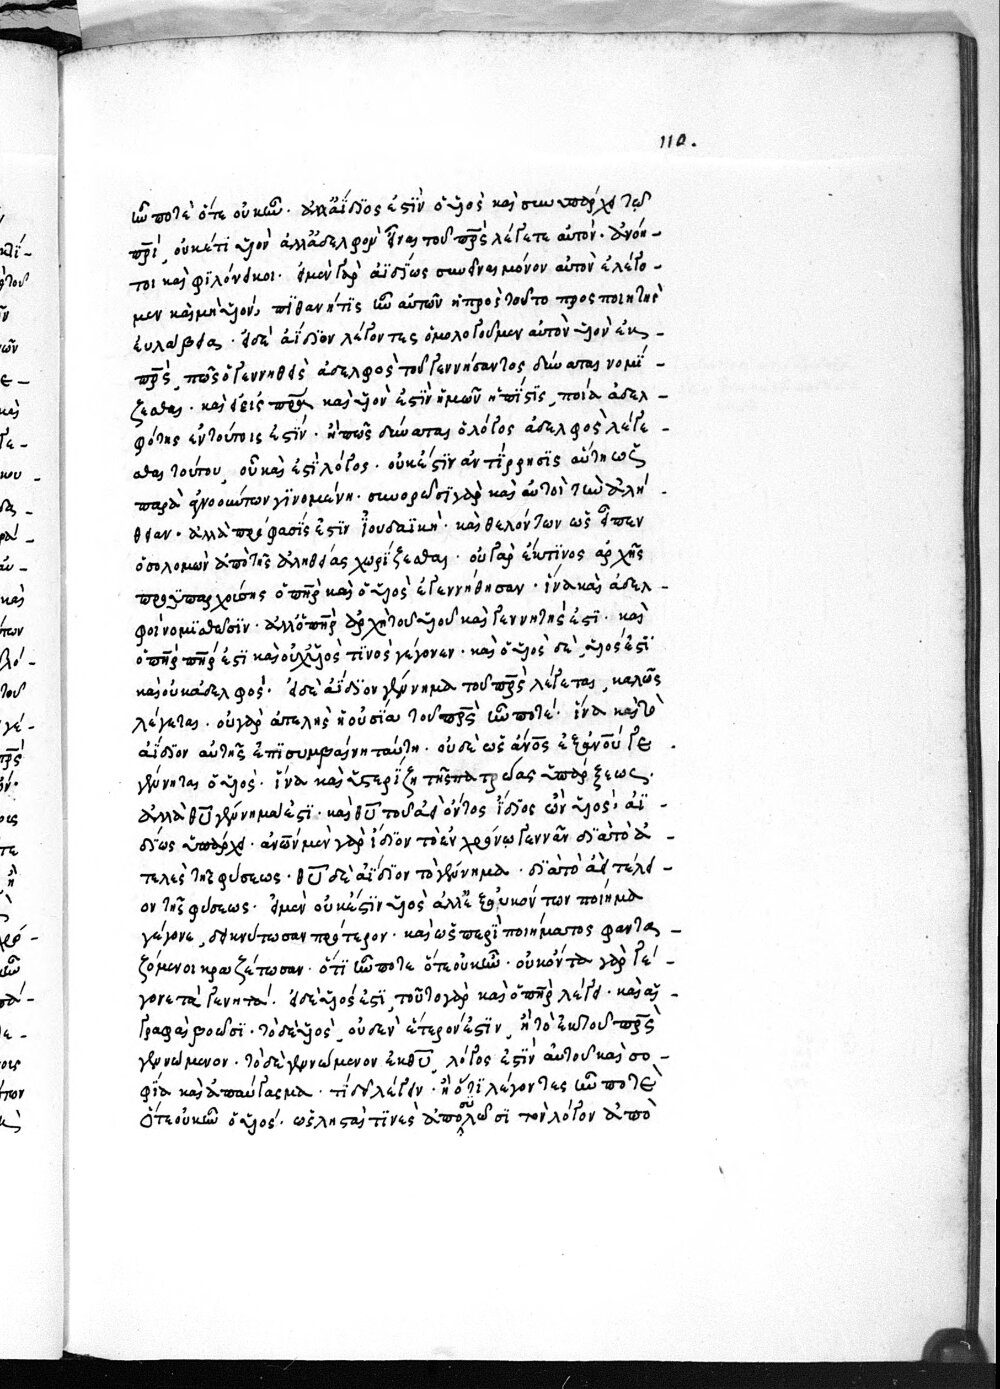 110.
ἦν ποτὲ ὅτε οὐκ ἦν. ἀλλ' ἀΐδιός ἐστιν ὁ υἱὸς καὶ συνυπάρχει τῷ
πρὶ, οὐκέτι υἱὸν ἀλλ' ἀδελφὸν εἶναι τοῦ πρς λέγετε αὐτόν. ἀνόη-
τοι καὶ φιλόνεικοι. εἰ μὲν γὰρ ἀϊδίως συνεῖναι μόνον αὐτὸν ἐλέγο-
μεν καὶ μὴ υἱόν, πιθανή τις ἦν αὐτῶν ἡ πρὸς τοῦτο προσποίητης
εὐλάβεια. εἰ δὲ ἀΐδιον λέγοντες ὁμολογοῦμεν αὐτὸν υἱὸν ἐκ
πρς, πῶς ὁ γεννηθεὶς ἀδελφὸς τοῦ γεννήσαντος δύναται νομί-
ζεσθαι. καὶ εἰ εἰς πρα καὶ υἱόν ἐστιν ἡμῶν ἡ πίστις, ποία ἀδελ-
φότης ἐν τούτοις ἐστίν. ἢ πῶς δύναται ὁ λόγος ἀδελφὸς λέγε-
σθαι τούτου, οὗ καὶ ἐστὶ λόγος. οὐκ ἔστιν ἀντίρρησις αὕτη ὡς
παρὰ ἀγνοούντων γινομένη. συνορῶσι γὰρ καὶ αὐτοὶ τὴν ἀλή-
θειαν. ἀλλὰ πρόφασίς ἐστιν Ἰουδαϊκὴ. καὶ θελόντων ὡς εἶπεν
ὁ σολομὼν ἀπὸ τῆς ἀληθείας χωρίζεσθαι. οὐ γὰρ ἔκ τινος ἀρχῆς
προϋπαρχούσης ὁ πηρ καὶ ὁ υἱὸς ἐγεννήθησαν. ἵνα καὶ ἀδελ-
φοὶ νομισθῶσιν. ἀλλ' ὁ πηρ ἀρχὴ τοῦ υἱοῦ καὶ γεννητής ἐστι. καὶ
ὁ πηρ πηρ ἐστι καὶ οὐχ υἱός τινος γέγονεν. καὶ ὁ υἱὸς δὲ, υἱός ἐστι
καὶ οὐκ ἀδελφός. εἰ δὲ ἀΐδιον γέννημα τοῦ πρς λέγεται, καλῶς
λέγεται. οὐ γὰρ ἀτελὴς ἡ οὐσία τοῦ πρς ἦν ποτέ. ἵνα καὶ τὸ
ἀΐδιον αὐτῆς ἐπισυμβαίνῃ ταύτῃ. οὐδὲ ὡς ἀνος ἐξ ἀνου γε
γέννηται ὁ υἱός. ἵνα καὶ ὑστερίζῃ τῆς πατρώας ὑπάρξεως.
ἀλλὰ θυ γέννημά ἐστι. καὶ θυ τοῦ ἀεὶ ὄντος ἴδιος ὢν υἱός. ἀϊ-
δίως ὑπάρχει. ἀνων μὲν γὰρ ἴδιον τὸ ἐν χρόνῳ γεννᾶν διὰ τὸ ἀ-
τελὲς τῆς φύσεως. θυ δὲ ἀΐδιον τὸ γέννημα. διὰ τὸ ἀεὶ τέλει-
ον τῆς φύσεως. εἰ μὲν οὐκ ἔστιν υἱὸς ἀλλ' ἐξ οὐκ ὄντων ποίημα
γέγονε, δεικνύτωσαν πρότερον. καὶ ὡς περὶ ποιήματος φαντα-
ζόμενοι κραζέτωσαν. ὅτι ἦν ποτε ὅτε οὐκ ἦν. οὐκ ὄντα γὰρ γέ-
γονε τὰ γενητά. εἰ δὲ υἱός ἐστι, τοῦτο γὰρ καὶ ὁ πηρ λέγει. καὶ αἱ
γραφαὶ βοῶσι. τὸ δὲ υἱὸς, οὐδὲν ἕτερόν ἐστιν, ἢ τὸ ἐκ τοῦ πρς
γεννώμενον. τὸ δὲ γεννώμενον ἐκ θυ, λόγος ἐστὶν αὐτοῦ καὶ σο-
φία καὶ ἀπαύγασμα. τί δεῖ λέγειν. ἢ ὅτι λέγοντες ἦν ποτὲ
ὅτε οὐκ ἦν ὁ υἱός. ὡς λῃσταί τινες ἀποσυλῶσι τὸν λόγον ἀπὸ